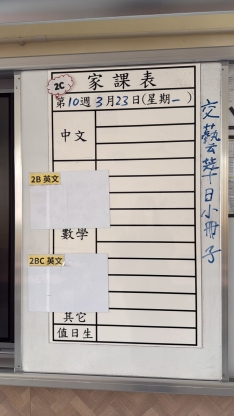 2C
家課表
第10週3月23日(星期一)
中文
2B 英文
數學
2BC 英文
其它
值日生
交藝萃日小冊子